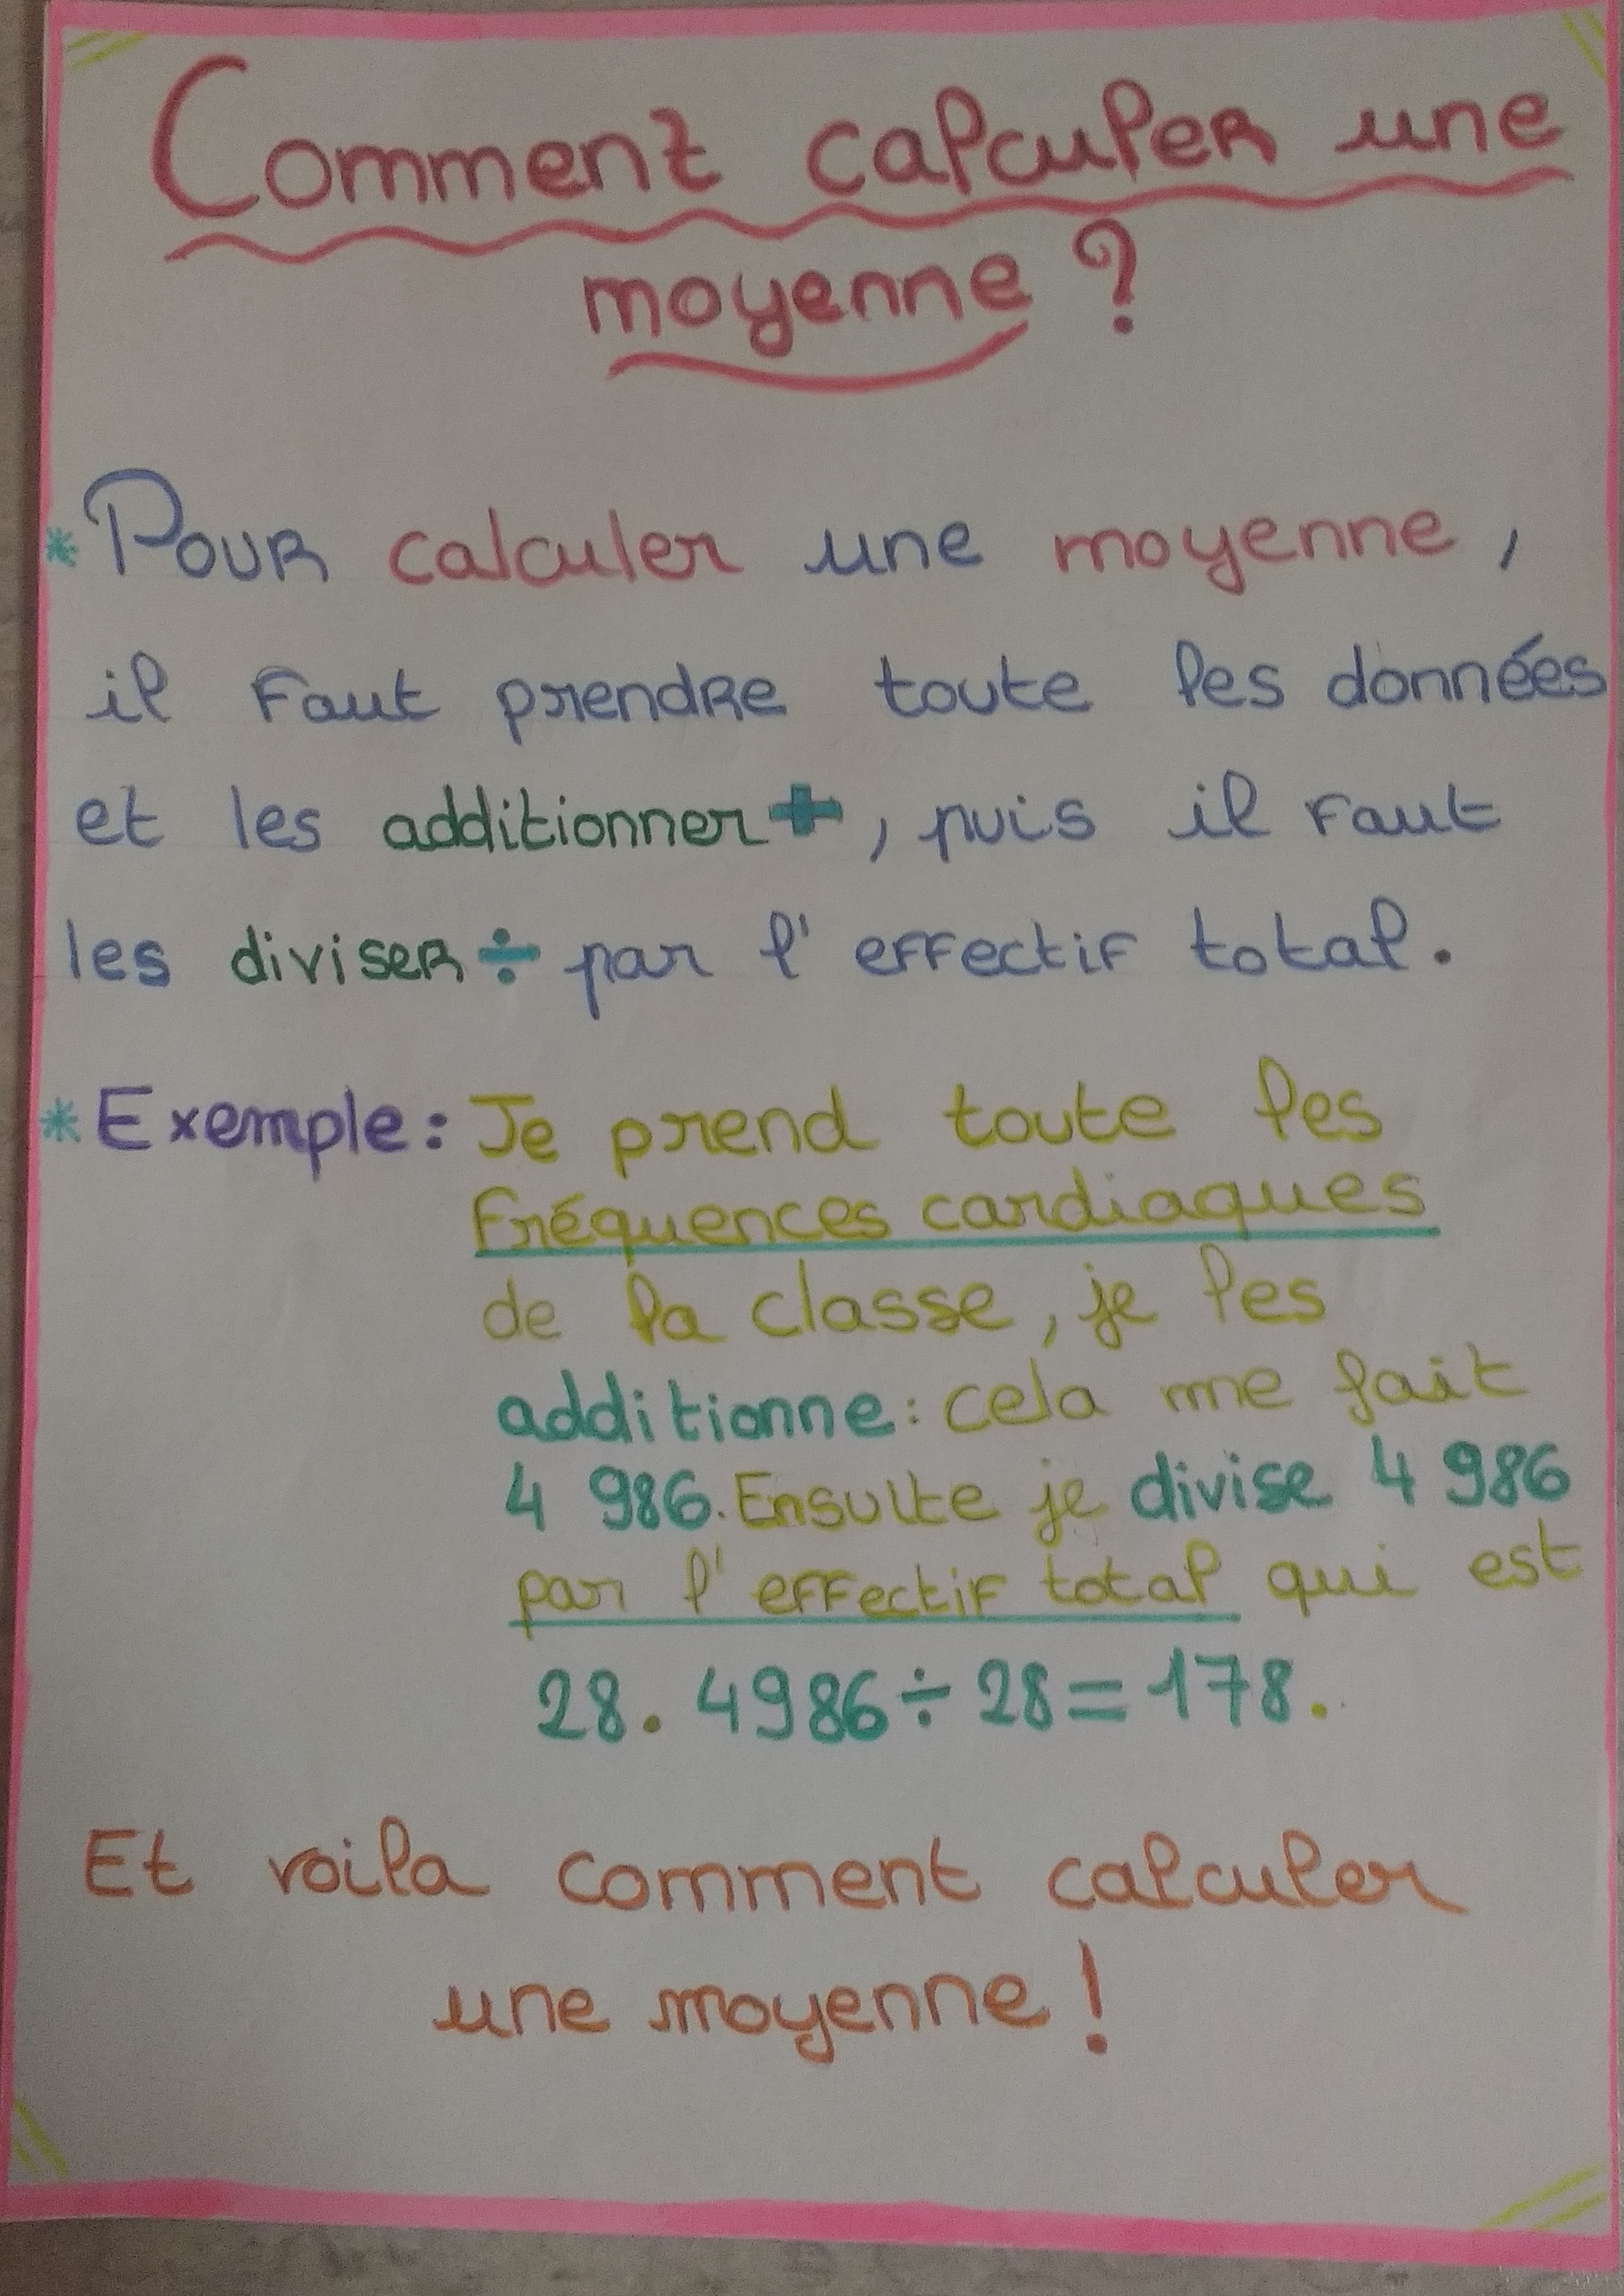 Comment calculer une
moyenne ?
* Pour calculer une moyenne,
il faut prendre toute les données
et les additionner +, puis il faut
les diviser ÷ par l'effectif total.
* Exemple : Je prend toute les
fréquences cardiaques
de la classe, je les
additionne : cela me fait
4 986. Ensuite je divise 4 986
par l'effectif total qui est
28. 4986 ÷ 28 = 178.
Et voila comment calculer
une moyenne !